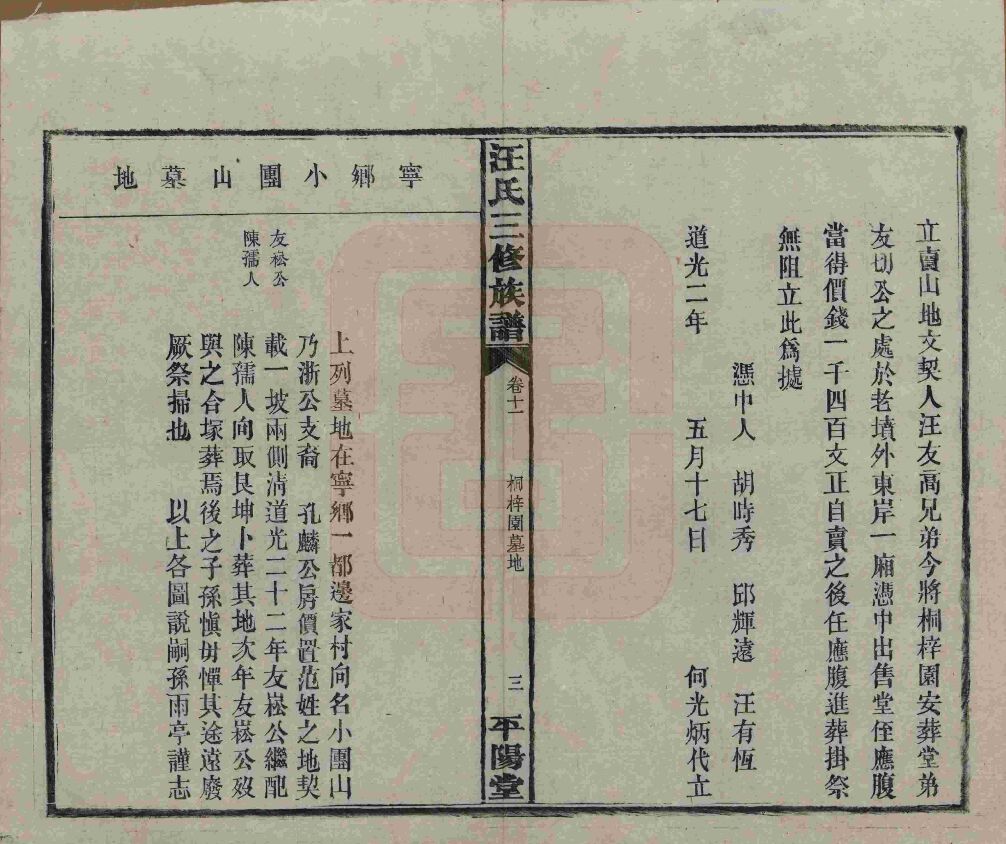 立賣山地文契人汪友高兄弟今將桐梓園安葬堂弟
友切公之處於老墳外東岸一廂憑中出售堂侄應腹
當得價錢一千四百文正自賣之後任應腹進葬掛祭
無阻立此為據
憑中人 胡時秀 邱輝遠 汪有恆
道光二年 五月十七日 何光炳代立
汪氏三修族譜 卷十一 桐梓園墓地 三 平陽堂
寧鄉小團山墓地
友崧公
陳孺人
上列墓地在寧鄉一都邊家村向名小團山
乃浙公支裔 孔麟公房價置范姓之地契
載一坡兩側清道光二十二年友崧公繼配
陳孺人向取艮坤卜葬其地次年友崧公歿
與之合塚葬焉後之子孫慎毋憚其途遠廢
厥祭掃也 以上各圖說嗣孫雨亭謹志